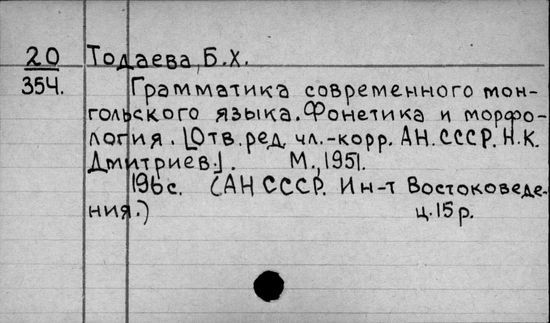 20 Тодаева, Б.Х.
354. Грамматика современного мон-
гольского языка. Фонетика и морфо-
логия. [Отв. ред. чл.-корр. АН. СССР. Н.К.
Дмитриев.]. М., 1951.
196 с. (АН СССР. Ин-т Востоковеде-
ния.) ц. 15 р.